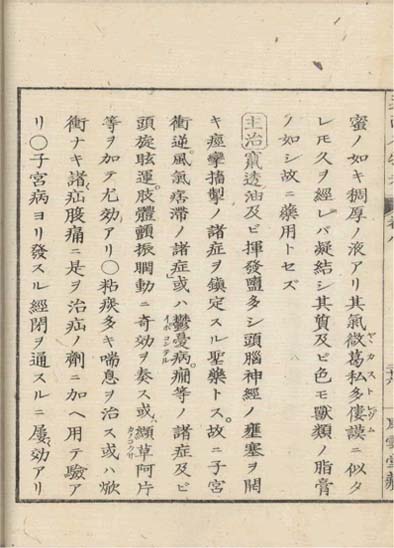 蜜ノ如キ稠厚ノ液アリ其氣微葛私多僂謨ニ似タ
レモ久ヲ經レバ凝結シ其質及ビ色モ獸類ノ脂膏
ノ如シ故ニ藥用トセズ
主治竄透油及ビ揮發鹽多シ頭腦神經ノ壅塞ヲ開
キ痙攣搐掣ノ諸症ヲ鎮定スル聖藥トス。故ニ子宮
衝逆。風氣痞滞ノ諸症。或ハ鬱憂病。癇等ノ諸症及ビ
頭旋眩運。肢體顫振瞤動ニ奇効ヲ奏ス或ハ纈草阿片
等ヲ加テ尤効アリ〇粘痰多キ喘息ヲ治ス或ハ焮
衝ナキ諸疝腹痛ニ是ヲ治疝ノ劑ニ加ヘ用テ驗ア
リ〇子宮病ヨリ發スル經閉ヲ通スルニ屢効アリ